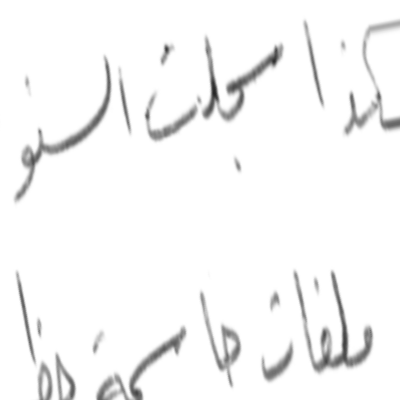 كذا سجلت السنو
ملفات حاسمة